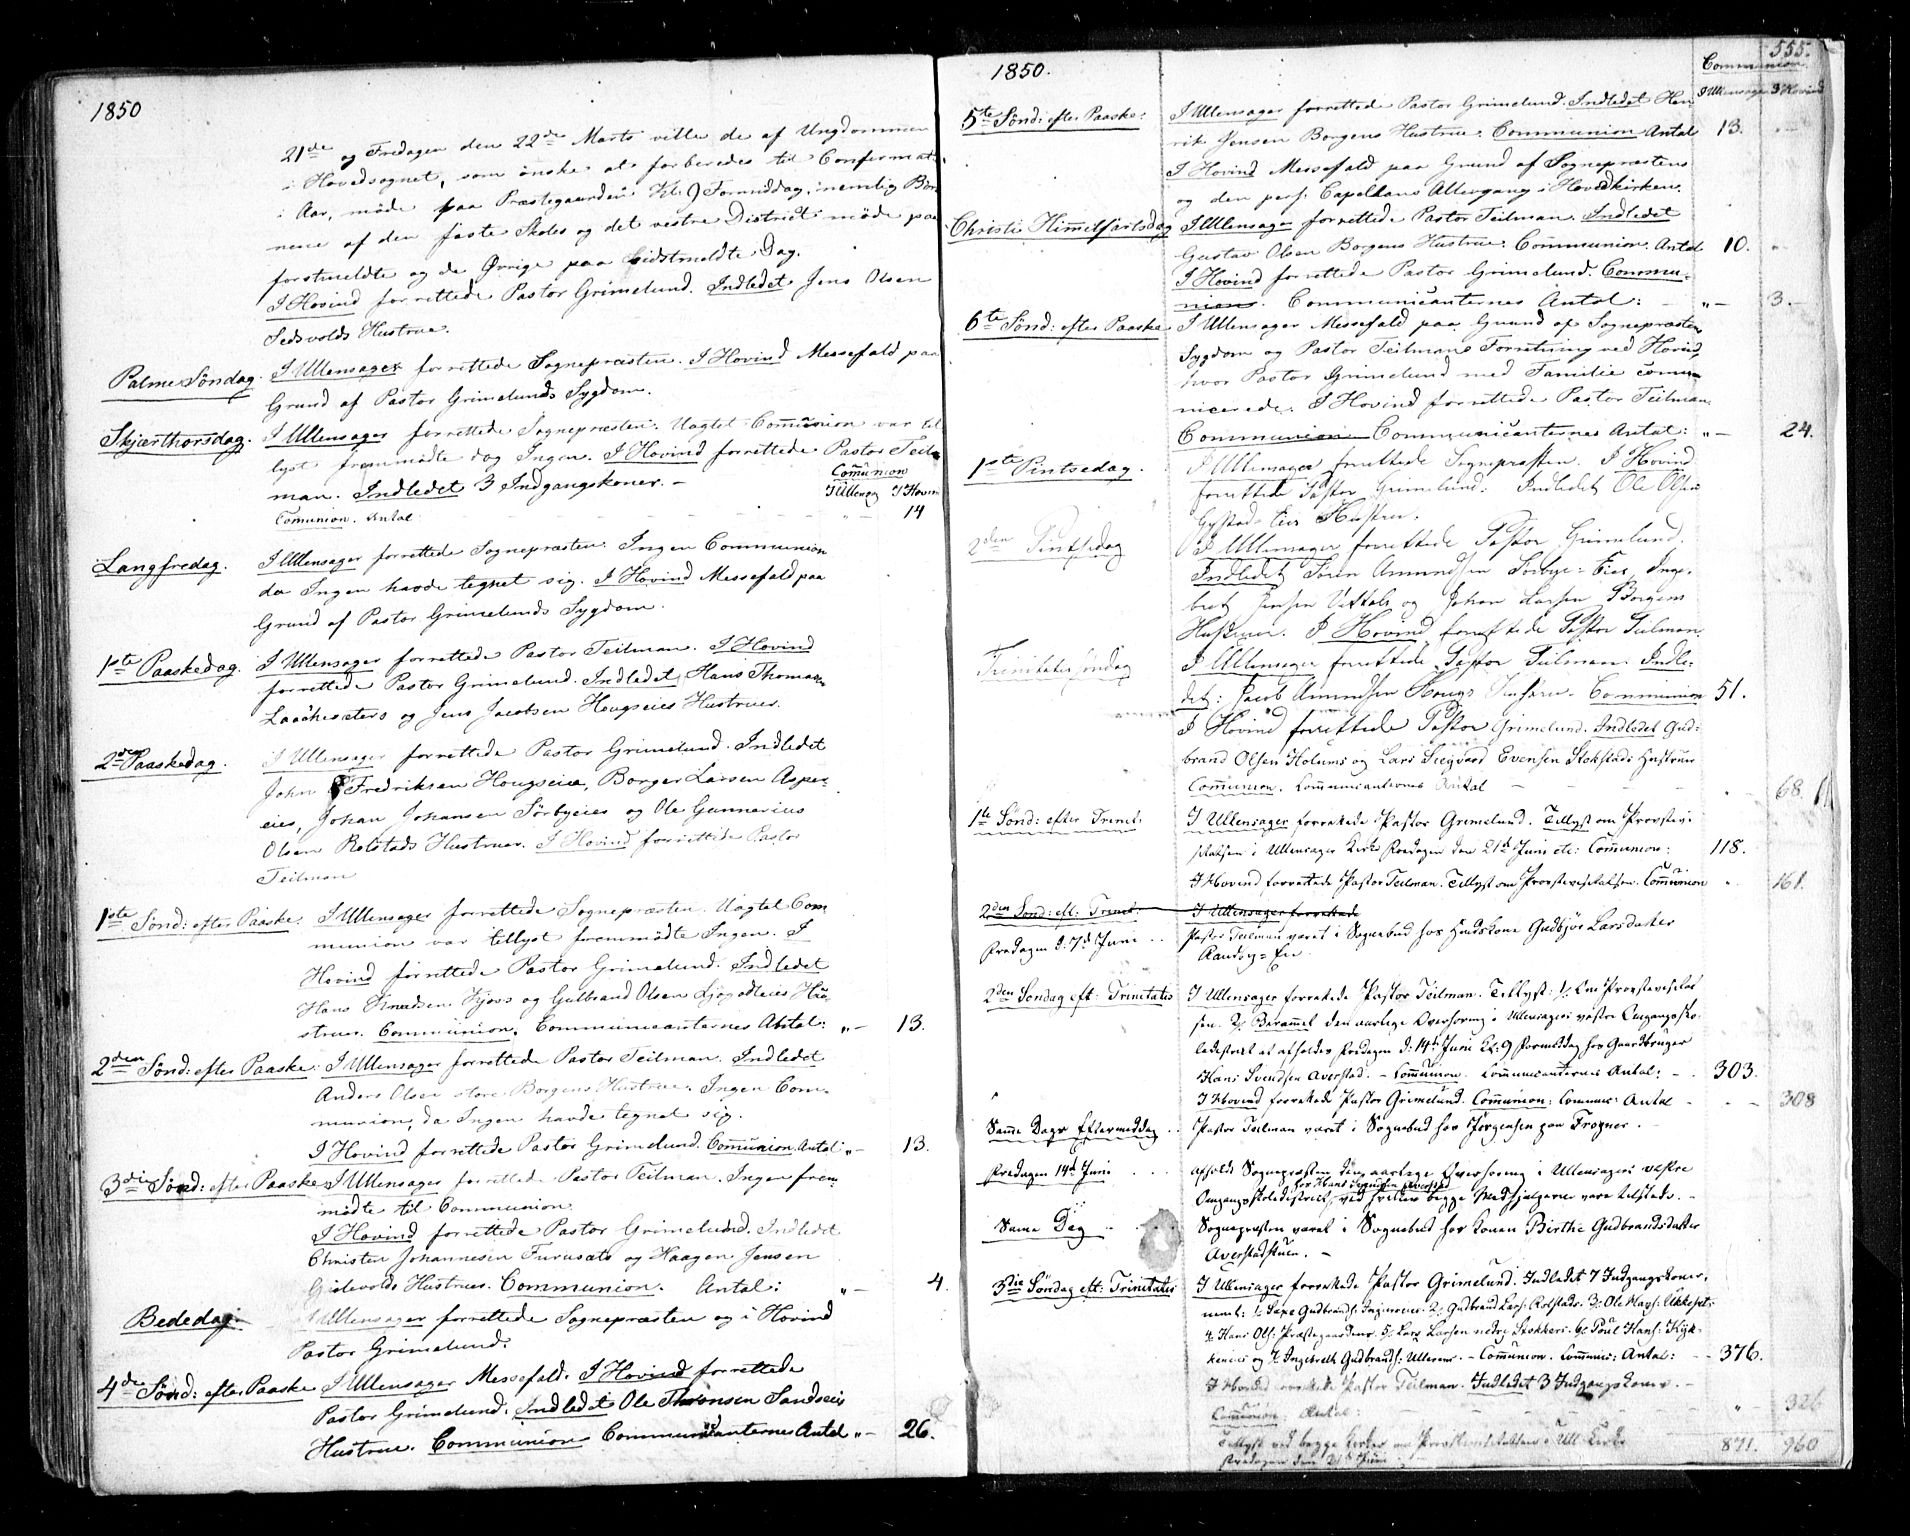 1850
21de og Fredagen den 22de Marts ville de af Ungdommen
i Hovedsognet, som ønske at forberedes til Confermat:
i Aar, møde paa Præstegaarden Kl. 9 Formiddag, nemlig Bør-
nene af den faste Skoles og det vestre District møde paa
førstmeldte og de Øvrige paa sidstmeldte Dag.
I Hovind forrettede Pastor Grimelund. Indledet Jens Olsen
Sedsvolds Hustrue.
Palme Søndag. I Ullensager forrettede Sognepræsten. I Hovind Messefald paa
Grund af Pastor Grimelunds Sygdom.
Skjærthorsdag. I Ullensager forrettede Sognepræsten. Uagtet Communion var til
lyst fremmødte dog Ingen. I Hovind forrettede Pastor Teil-
man. Indledet 3 Indgangskoner. -
Comunion
I Ullensag I Hovin
Comunion. Antal " - 14
Langfredag. I Ullensager forrettede Sognepræsten. Ingen Communion
da Ingen havde tegnet sig. I Hovind Messefald paa
Grund af Pastor Grimelunds Sygdom.
1ste Paaskedag. I Ullensager forrettede Pastor Teilman. I Hovind
forrettede Pastor Grimelund. Indledet Hans Thomas-
og Jens Jacobsen Hougseies Hustruer.
2de Paaskedag. I Ullensager forrettede Pastor Grimelund. Indledet
John Fredriksen Hougseie, Borger Larsen Asper-
eies, Johan Johansen Sörbyeies og Ole Gunnerius
Olsen Rolstads Hustruer. I Hovind forrettede Pastor
Teilman
1ste Sönd: efter Paaske. I Ullensager forrettede Sognepræsten. Uagtet Com
munion var tillyst fremmödte Ingen. I
Hovind forrettede Pastor Grimelund. Indledet
Hans Knudsen og Gulbrand Olsen Hu-
struer. Communion. Communicanternes Antal: " - 13.
2den Sönd: efter Paaske: I Ullensager forrettede Pastor Teilman. Indledet
Anders Olsen store Borgens Hustrue. Ingen Com-
munion, da Ingen havde tegnet sig.
I Hovind forrettede Pastor Grimelund. Communion. Antal " - 13.
3die Sönd: efter Paaske I Ullensager forrettede Pastor Teilman. Ingen frem-
mödte til Communion.
I Hovind forrettede Pastor Grimelund. Indledet
Christen Johannesen Furusæts og Haagen Jensen
Hustruer. Communion. Antal: " - 4.
Bededag. I Ullensager forrettede Sognepræsten og i Hovind
Pastor Grimelund.
4de Sönd: efter Paaske I Ullensager Messefald. I Hovind forrettede
Pastor Grimelund. Indledet Ole Thronsen Sandseies
Hustrue. Communion Communicanternes Antal " - 26.
1850.
555.
Communion
I Ullensager I Hovind
5te Sönd: efter Paaske: I Ullensager forrettede Pastor Grimelund. Indledet Hen
rik Jensen Borgens Hustrue. Communion Antal 13. " -
I Hovind Messefald paa Grund af Sognepræstens
og den pers: Capellans Altergang i Hovedkirken.
Christi Himmelfartsdag I Ullensager forrettede Pastor Teilman. Indledet
Gustav Olsen Borgens Hustrue. Communion. Antal 10. "
I Hovind forrettede Pastor Grimelund. Commu-
nion. Communicanternes Antal: " - 3. -
6te Sönd: efter Paaske I Ullensager Messefald paa Grund af Sognepræstens
Sygdom og Pastor Teilmans Forretning ved Hovind,
hvor Pastor Grimelund med Familie commu-
nicerede. I Hovind forrettede Pastor Teilman
Communion Communicanternes Antal: " - 24.
1ste Pintsedag. I Ullensager forrettede Sognepræsten. I Hovind
forrettede Pastor Grimelund. Indledet Ole Olsen
Gystad-Eies Hustru.
2den Pintsedag I Ullensager forrettede Pastor Grimelund.
Indledet Sören Amundsen Sörbye-Eies, Inge-
bret Jensen og Johan Larsen Borgens
Hustruer. I Hovind forrettede Pastor Teilman.
Trinitatissöndag I Ullensager forrettede Pastor Teilman. Indle-
det: Jacob Amundsen Hougs Hustru. Communion 51.
I Hovind forrettede Pastor Grimelund. Indledet Gud-
brand Olsen Holums og Lars Sigvard Evensen Stokstads Hustruer
Comunion. Communicanternes Antal " 68
1te Sönd: efter Trinit: I Ullensager forrettede Pastor Grimelund. Tillyst om Provstevi-
sitatsen i Ullensager Kirke Fredagen den 21de Juni etc: Communion: 118.
I Hovind forrettede Pastor Teilman. Tillyst om Provstevisitatsen. Communion " 161.
2den Sönd: eft: Trinit: I Ullensager forrettede
Fredagen d: 7de Juni .. Pastor Teilman været i Sognebud hos Huuskone Gudbjør Larsdatter
Randby-Eie
2den Søndag eft: Trinitatis I Ullensager forrettede Pastor Teilman. Tillyst: 1, Om Provstevisitat
sen. 2, Berammet den aarlige Overhøring i Ullensagers vestre Omgangssko-
ledistrict at afholdes Fredagen d: 14de Juni Kl: 9 Formiddag hos Gaardbruger
Hans Svendsen Averstad. - Communion. Communicanternes Antal: - 303.
I Hovind forrettede Pastor Grimelund. Communion: Commun: Antal - - - 308
Samme Dags Eftermiddag .. Pastor Teilman været i Sognebud hos Jørgensen paa Frogner. -
Fredagen 14de Juni ... afholdt Sognepræsten den aarlige Overhøring i Ullensagers vestre
hos Hans Svendsen Averstad
Omgangsskoledistrict, ved hvilken begge Medhjælperne vare tilstede. -
Samme Dag .. Sognepræsten været i Sognebud hos Konen Birthe Gudbrandsdatter
Averstadstuen. -
3die Søndag eft: Trinitatis I Ullensager forrettede Pastor Grimelund. Indledet 7 Indgangskoner,
neml: 1, Gudbrands: 2, Gudbrand Lars: Rolstads. 3, Ole
4, Hans Ols: Præstegaardens. 5, Lars Larsen nedre Stokkers. 6, Poul Hans: Kjøk-
keneies og 7, Ingebreth Gudbrands: Ullerens. - Communion. Commun: Antal: - - 376.
I Hovind forrettede Pastor Teilman. Indledet 3 Indgangskoner. -
Comunion. Antal: " - 326
Tillyst ved begge Kirker om Provstevisitatsen i Ull: Kirke 871. 960
Fredagen den 21de Juni